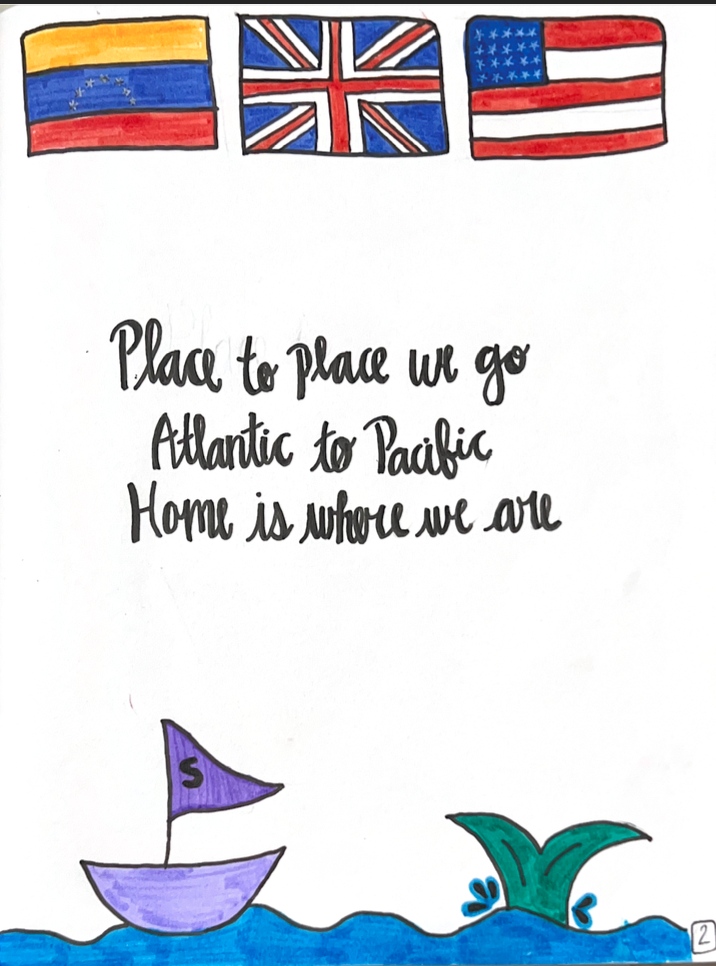 Place to place we go
Atlantic to Pacific
Home is where we are
S
2